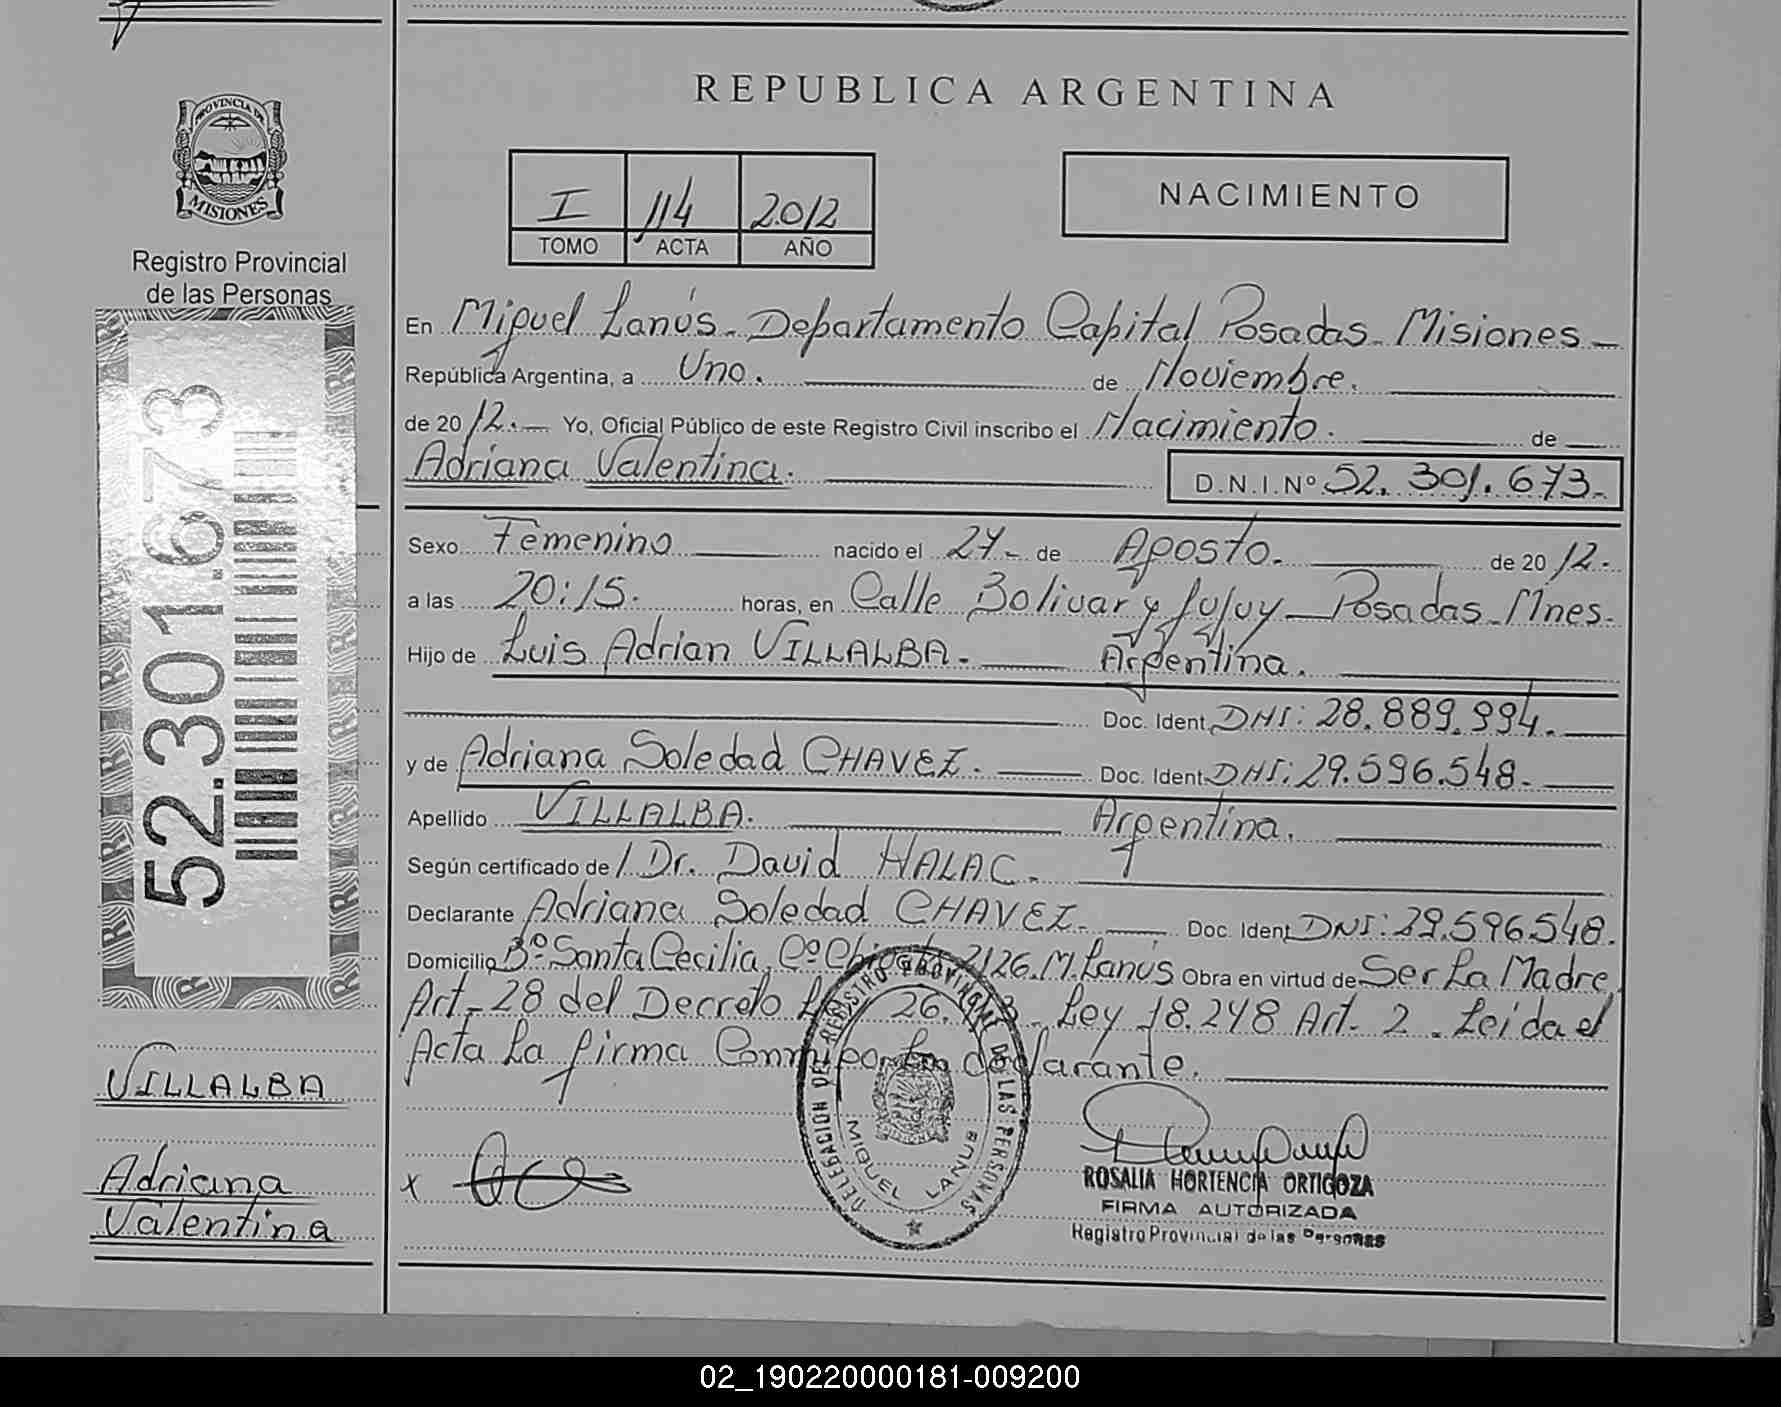 REPUBLICA ARGENTINA
PROVINCIA DE
MISIONES
Registro Provincial
de las Personas
52.301.673
I 114 2012
TOMO ACTA AÑO
NACIMIENTO
En Miguel Lanús - Departamento Capital Posadas - Misiones -
República Argentina, a Uno. de Noviembre.
de 2012.- Yo, Oficial Público de este Registro Civil inscribo el Nacimiento. de
Adriana Valentina. D.N.I.Nº 52.301.673.-
Sexo Femenino nacido el 27- de Agosto. de 2012.-
a las 20:15. horas, en Calle Bolivar y Jujuy - Posadas - Mnes.
Hijo de Luis Adrian VILLALBA. Argentina.
Doc. Ident. DNI: 28.889.994.
y de Adriana Soledad CHAVEZ. Doc. Ident. DNI: 29.596.548.
Apellido VILLALBA. Argentina.
Según certificado de / Dr. David HALAC.
Declarante Adriana Soledad CHAVEZ. Doc. Ident. DNI: 29.596.548.
Domicilio Bº Santa Cecilia, Cº 2126. M. Lanús Obra en virtud de Ser La Madre
Art.- 28 del Decreto 26. Ley 18.248 Art. 2. Leida el
Acta La firma Conmigo La declarante.
VILLALBA
Adriana
Valentina
x
DELEGACION DEL REGISTRO PROVINCIAL DE LAS PERSONAS
MIGUEL LANUS
ROSALIA HORTENCIA ORTIGOZA
FIRMA AUTORIZADA
Registro Provincial de las Personas
02_190220000181-009200